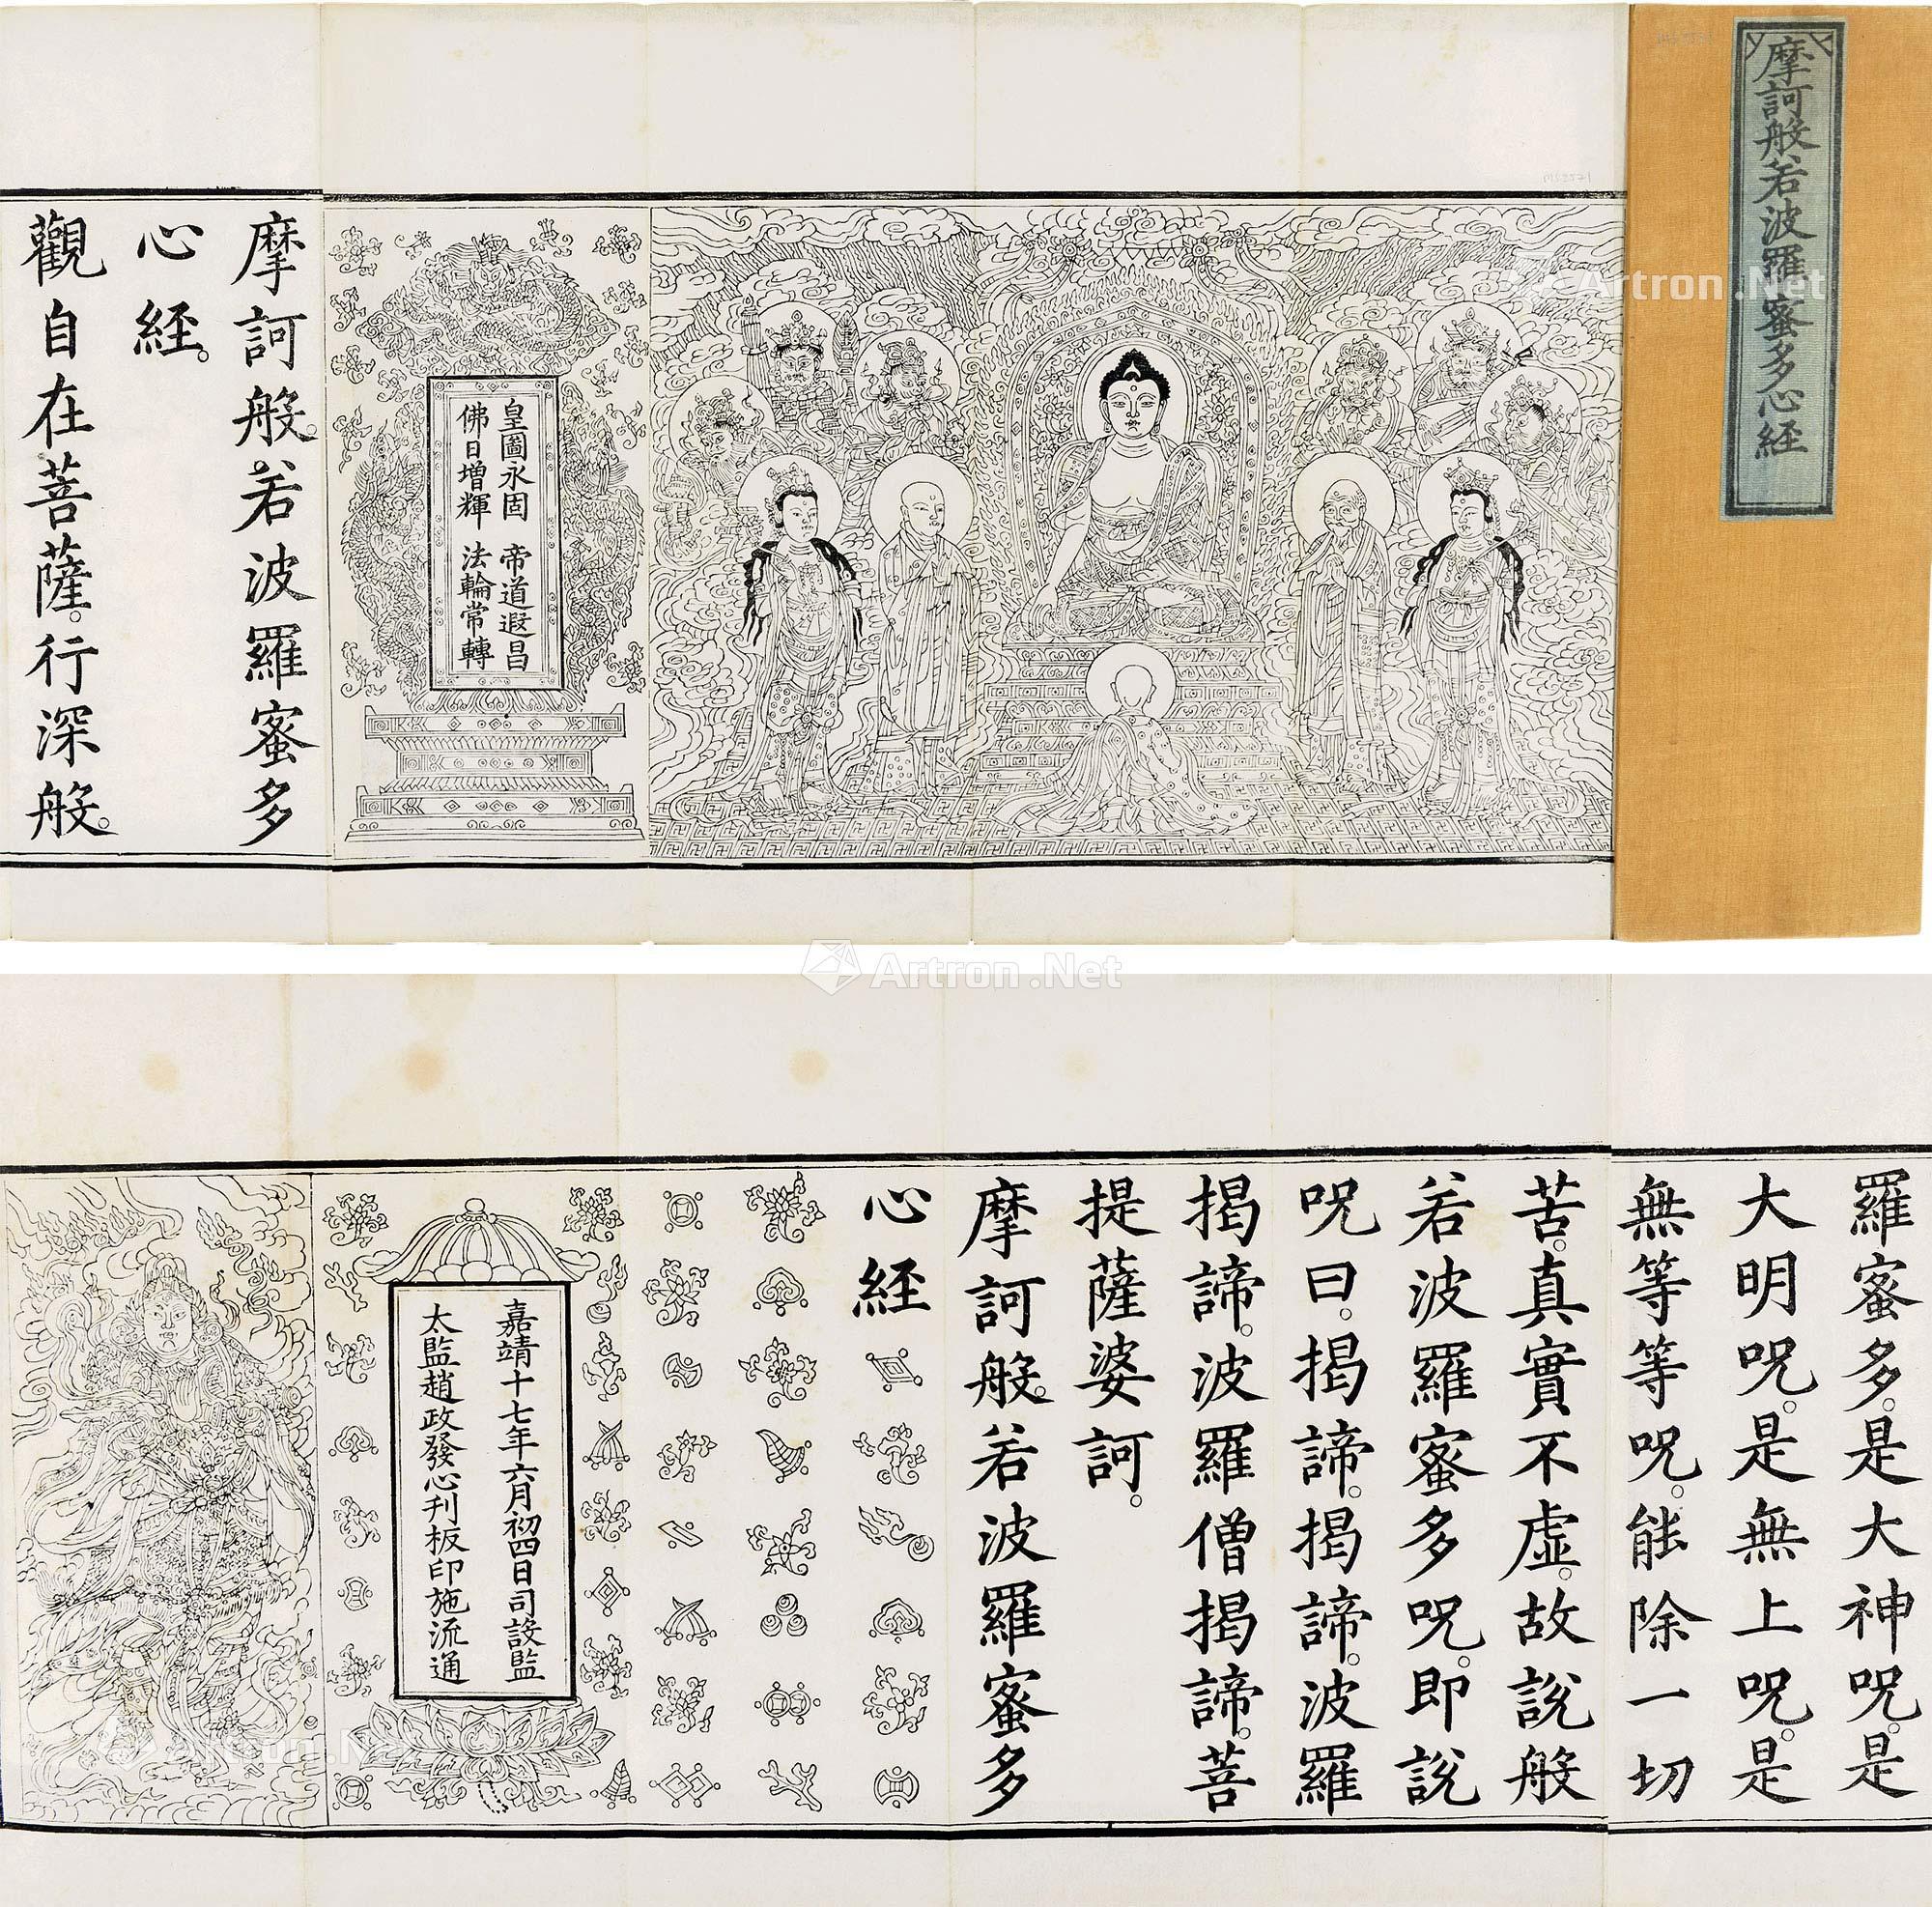 摩訶般若波羅蜜多心経
皇圖永固 帝道遐昌
佛日增輝 法輪常轉
摩訶般若波羅蜜多
心経
觀自在菩薩行深般
羅蜜多是大神呪是
大明呪是無上呪是
無等等呪能除一切
苦真實不虛故說般
若波羅蜜多呪即說
呪曰揭諦揭諦波羅
揭諦波羅僧揭諦菩
提薩婆訶
摩訶般若波羅蜜多
心経
嘉靖十七年六月初四日司設監
太監趙政發心刊板印施流通
Artron.Net
Artron.Net
Artron.Net